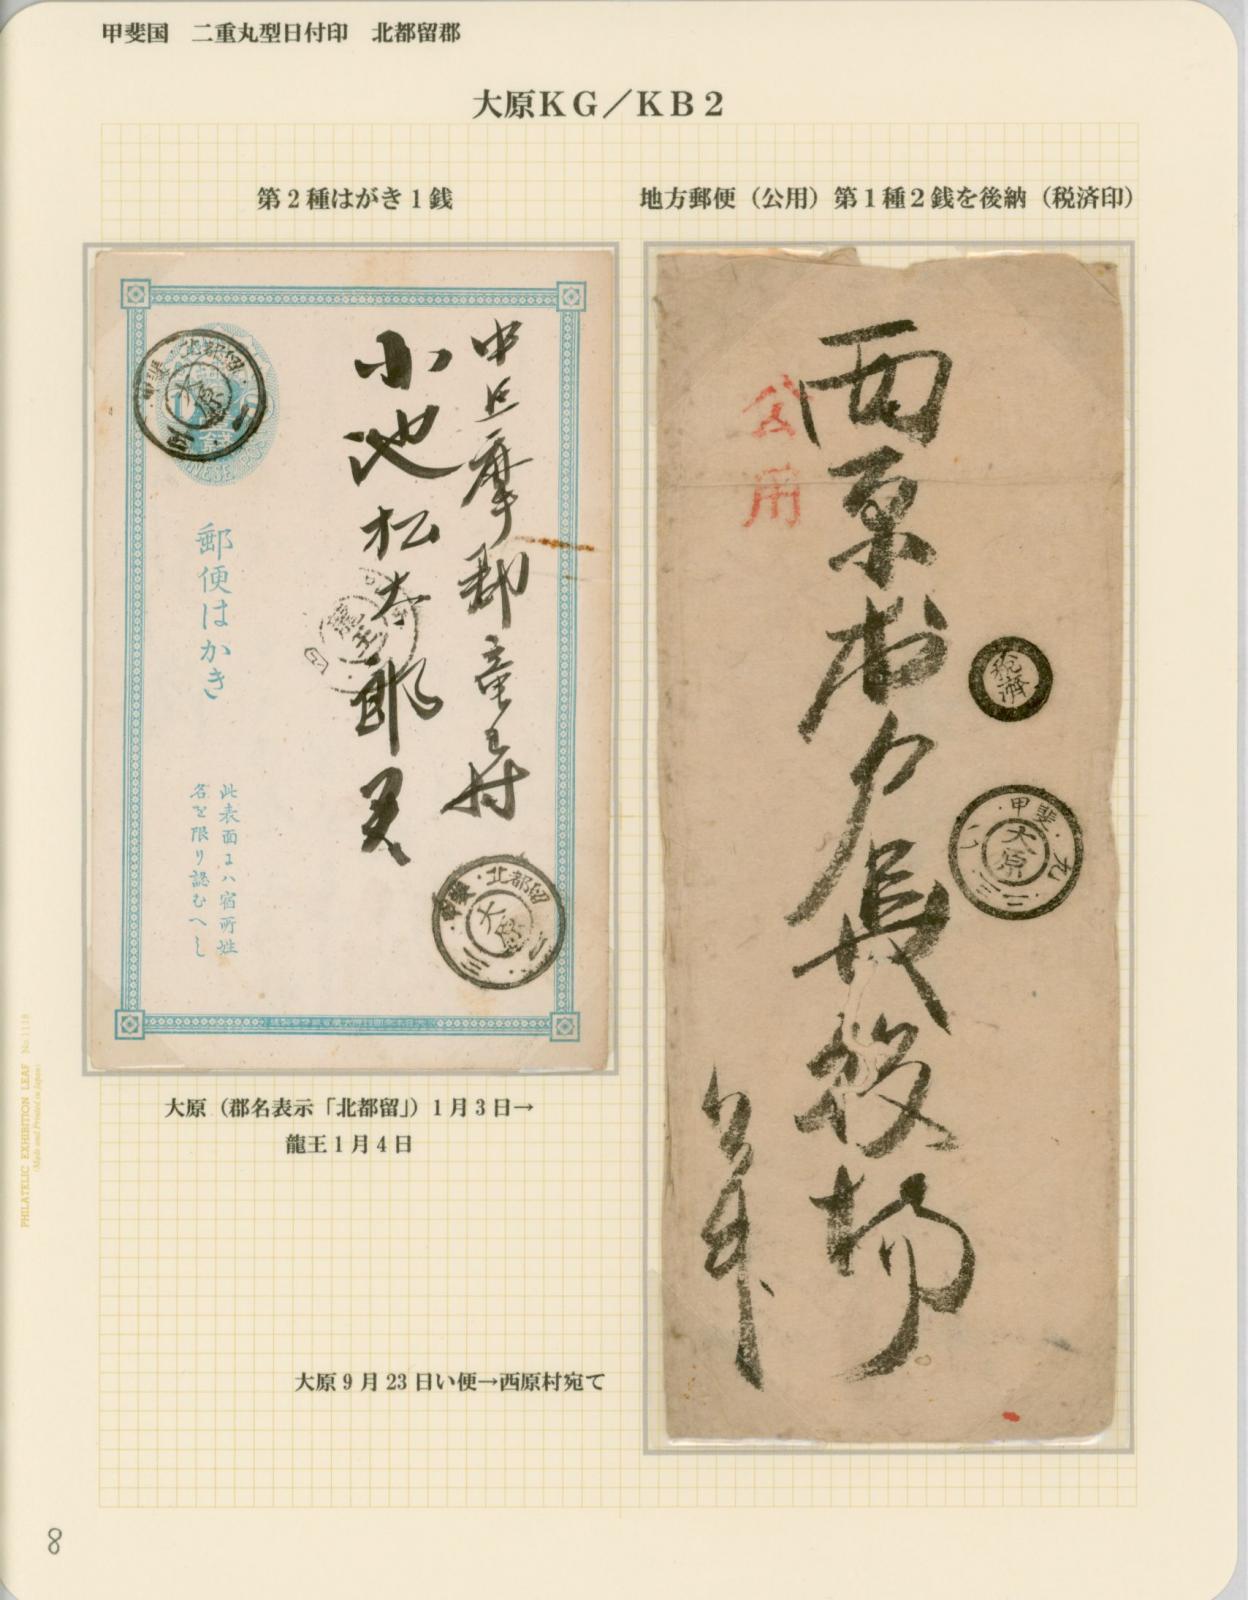 甲斐国 二重丸型日付印 北都留郡
大原KG/KB2
第2種はがき1銭
地方郵便(公用)第1種2銭を後納(税済印)
甲斐・北都留
大原
郵便はかき
此表面ニハ宿所姓
名を限り認むへし
中巨摩郡竜王村
小池松太郎
龍王
甲斐・北都留
大原
大原(郡名表示「北都留」)1月3日→
龍王1月4日
公用
西原村
役場
税済
甲斐・九
大原
大原9月23日い便→西原村宛て
PHILATELIC EXHIBITION LEAF No.1118
(Made and Printed in Japan)
8